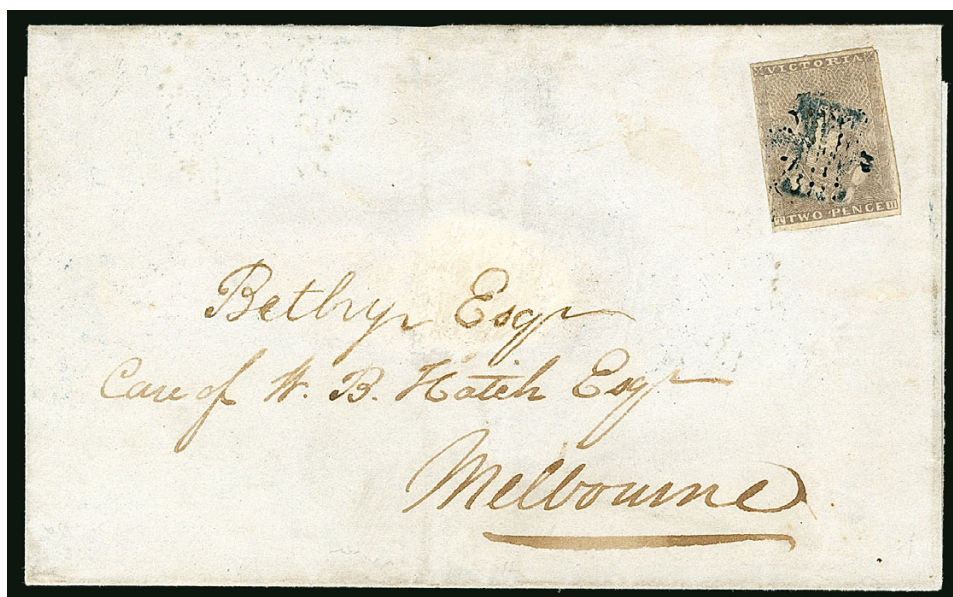 VICTORIA
TWO PENCE
Bethyr Esqr
Care of W. B. Hatch Esqr
Melbourne